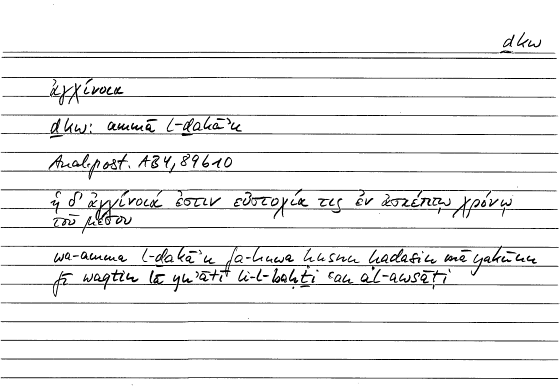 ḏkw
ἀγχίνοια
ḏkw: ammā l-ḏakāʾu
Anal. post. A34, 89b10
ἡ δ' ἀγχίνοιά ἐστιν εὐστοχία τις ἐν ἀσκέπτῳ χρόνῳ
τοῦ μέσου
wa-amma l-ḏakāʾu fa-huwa ḥusnu ḥadasin mā yakūnu
fī waqtin lā yuʾātī li-l-baḥṯi ʿan al-awsāṭi